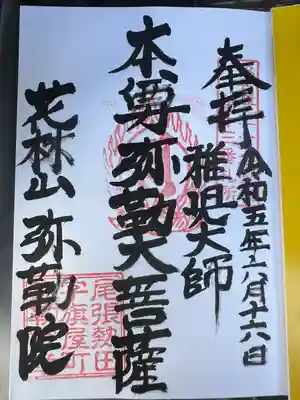 奉拝
令和五年六月十六日
稚児大師
本尊弥勒大菩薩
花林山弥勒院
尾張熱田
旗屋町